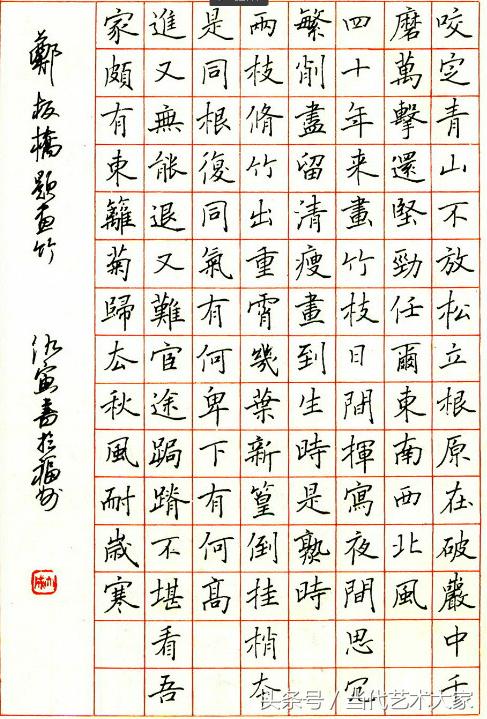 咬定青山不放松立根原在破巖中千
磨萬擊還堅勁任爾東南西北風
四十年来畫竹枝日間揮寫夜間思冗
繁削盡留清瘦畫到生時是熟時
兩枝脩竹出重霄幾葉新篁倒挂梢本
是同根復同氣有何卑下有何高
進又無能退又難宦途跼蹐不堪看吾
家頗有東籬菊歸厺秋風耐歲寒
鄭板橋題画竹
寅書於福州
头条号 / 当代艺术大家